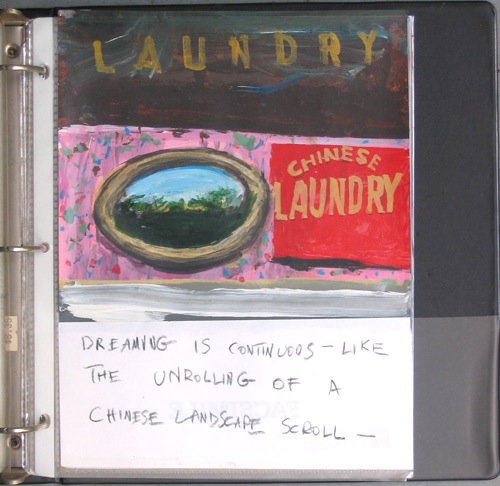 LAUNDRY
CHINESE
LAUNDRY
DREAMING IS CONTINUOUS — LIKE
THE UNROLLING OF A
CHINESE LANDSCAPE SCROLL —